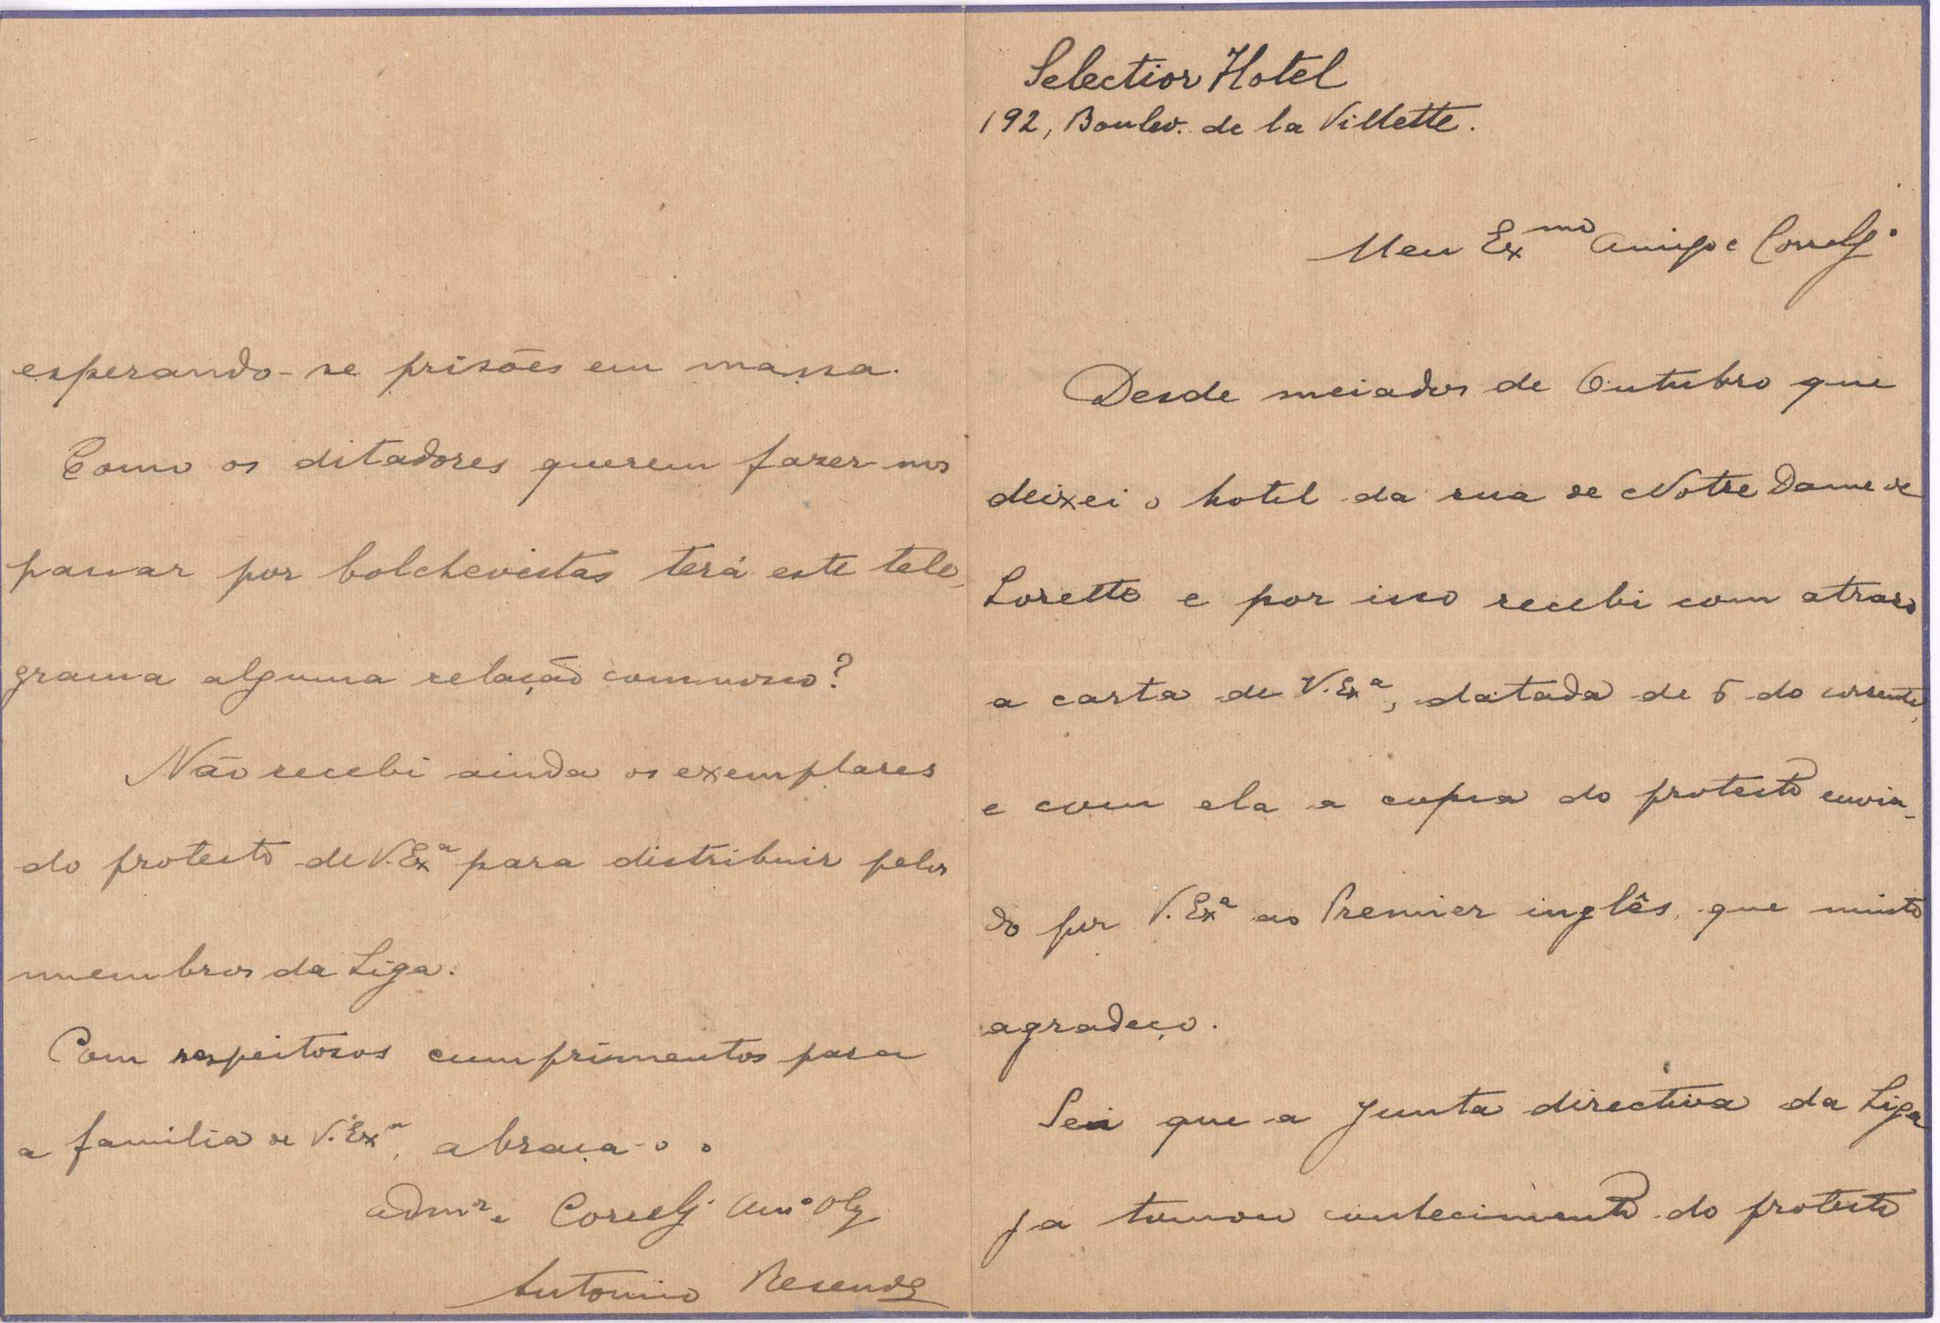 Selection Hotel
192, Boulev. de la Villette.
Meu Exmo Amigo e Correlg.
Desde meiados de Outubro que
deixei o hotel da rua de Notre Dame de
Lorette e por isso recebi com atraso
a carta de V. Exa, datada de 5 do corrente,
e com ela a cópia do protesto envia-
do por V. Exa ao Premier inglês, que muito
agradeço.
Sei que a Junta directiva da Liga
já tomou conhecimento do protesto
esperando-se prisões em massa.
Como os ditadores querem fazer-nos
passar por bolchevistas terá este tele-
grama alguma relação comnosco?
Não recebi ainda os exemplares
do protesto de V. Exa para distribuir pelos
membros da Liga.
Com respeitosos cumprimentos para
a familia de V. Exa, abraça-o o
admor e Correlg. Amo Obg
Antonio Resende